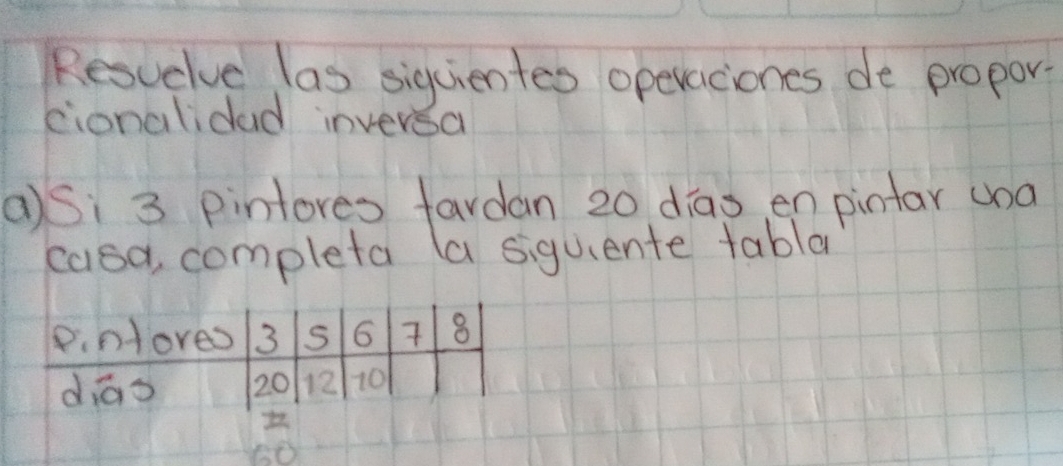 Resuelve las siguientes operaciones de propor-
cionalidad inversa
a) Si 3 pintores tardan 20 días en pintar una
casa, completa la siguiente tabla
Pintores 3 5 6 7 8
días 20 12 10
=
60